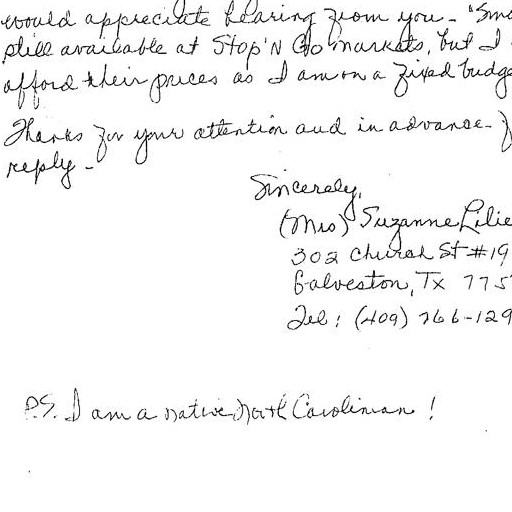 would appreciate hearing from you - "Smo
still available at Stop'N Go markets, but I
afford their prices as I am on a fixed budge
Thanks for your attention and in advance - f
reply -
Sincerely,
(Mrs) Suzanne Lilie
302 Church St #19
Galveston, Tx 775
Tel: (409) 766-129
P.S. I am a native North Carolinian!